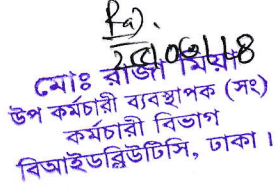 ২৫/০৩/১8
মোঃ রাজা মিয়া
উপ কর্মচারী ব্যবস্থাপক (সং)
কর্মচারী বিভাগ
বিআইডব্লিউটিসি, ঢাকা।